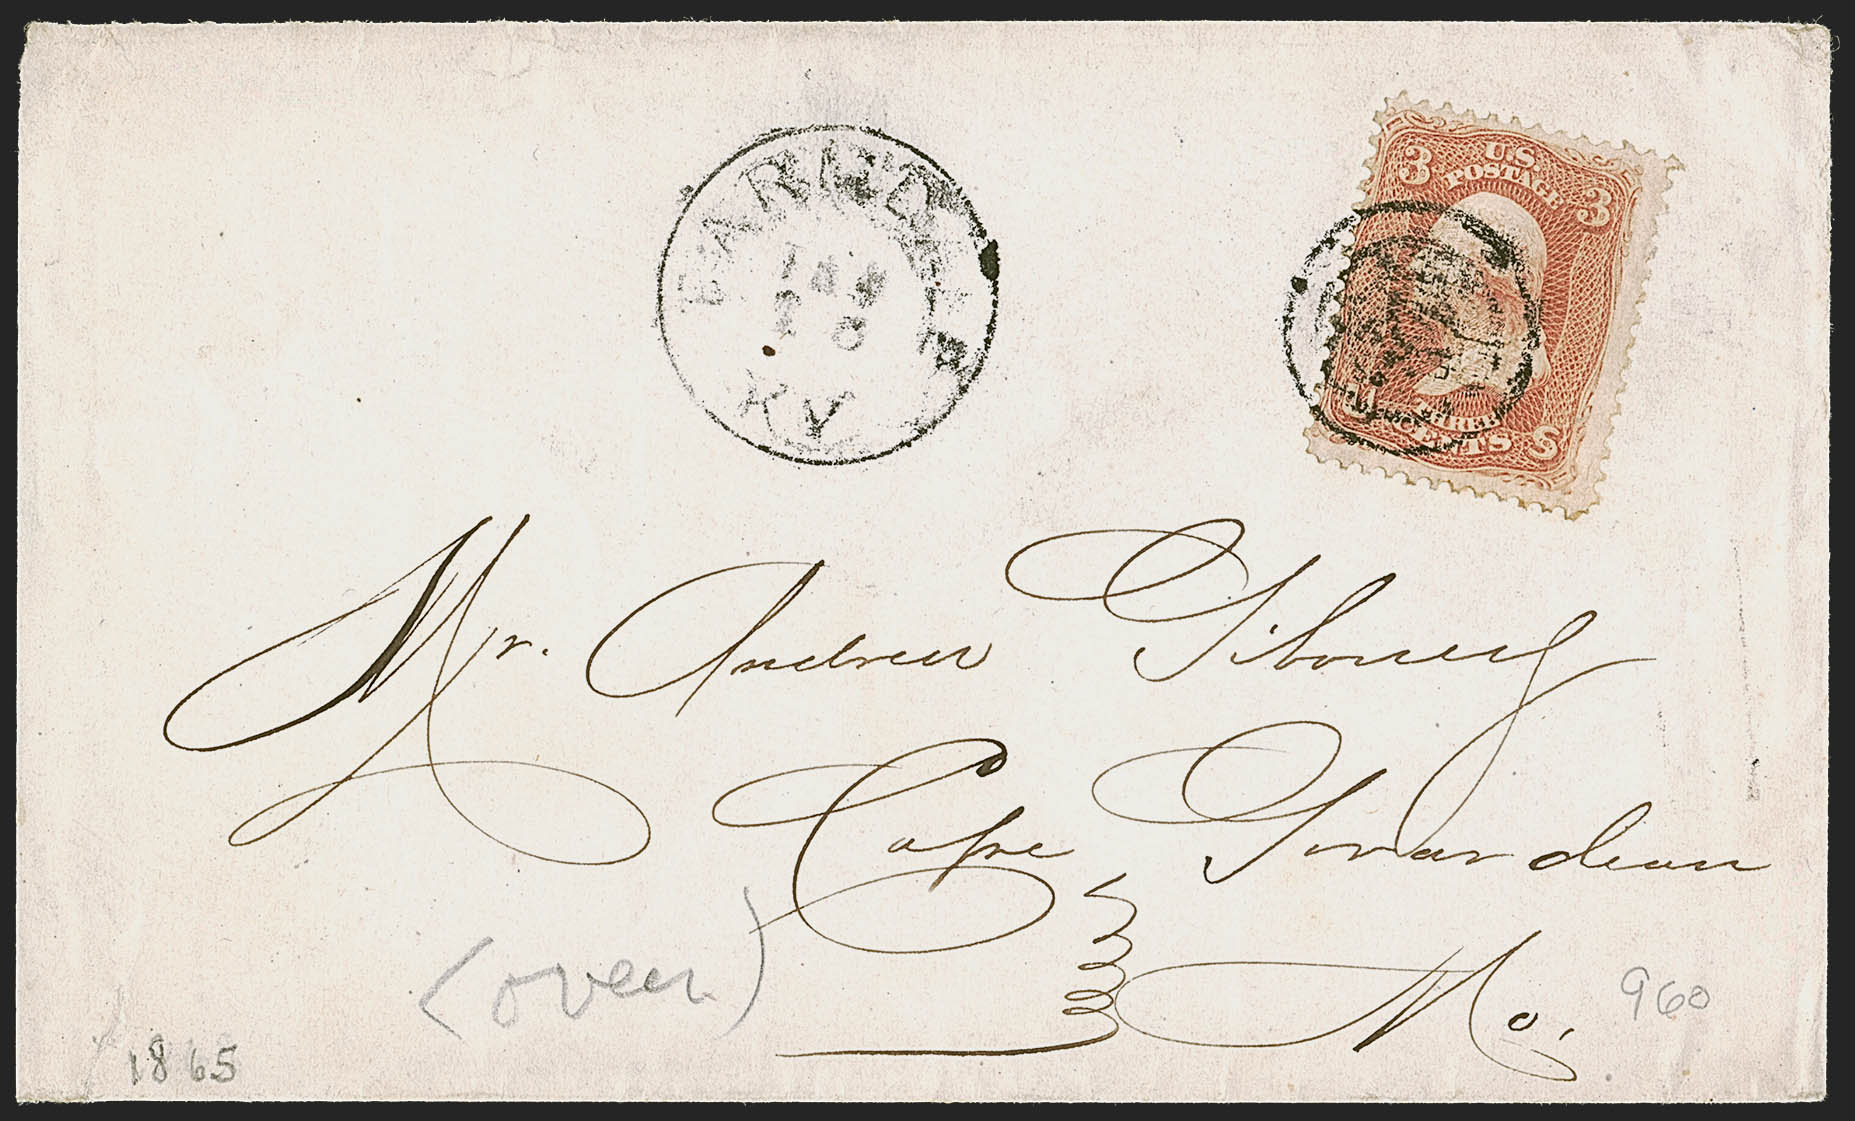 JAN
KY
3 U.S. POSTAGE 3
THREE
CENTS
Mr. Andrew Giboney
Cape Girardeau
Mo.
(over)
1865
960